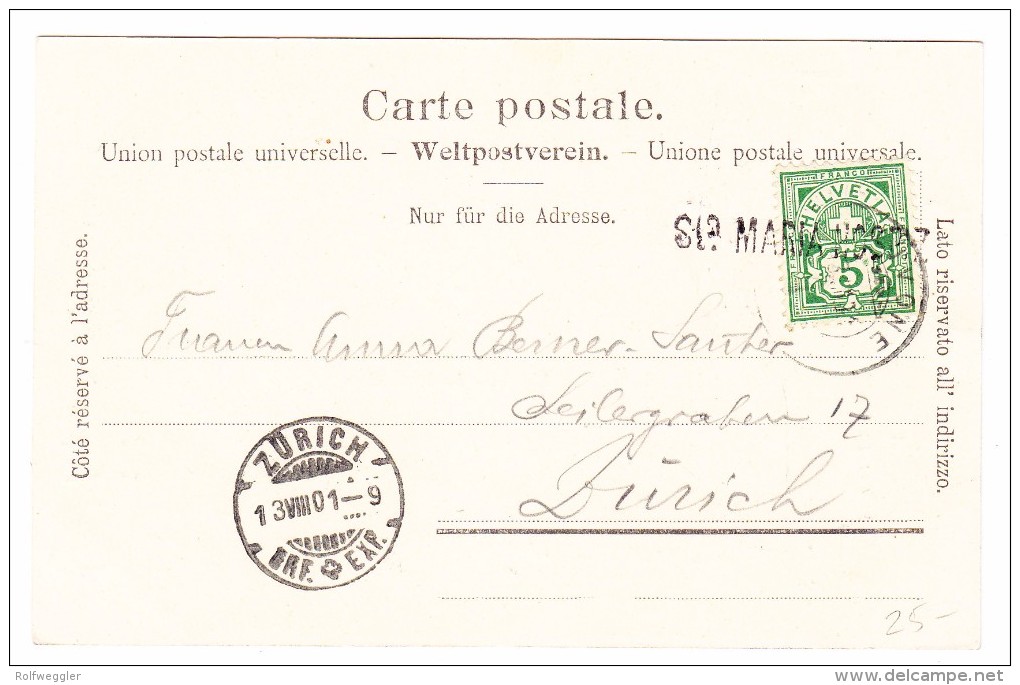 Carte postale.
Union postale universelle. – Weltpostverein. – Unione postale universale.
Nur für die Adresse.
FRANCO
HELVETIA
5
Sta. MARIA
VONE
Côté réservé à l'adresse.
Lato riservato all' indirizzo.
Frauen Anna Berner-Sauter
Seilergraben 17
Zürich
ZÜRICH
13 VIII 01 – 9
BRF. EXP.
25-
Rolfweggler
delcampe.net